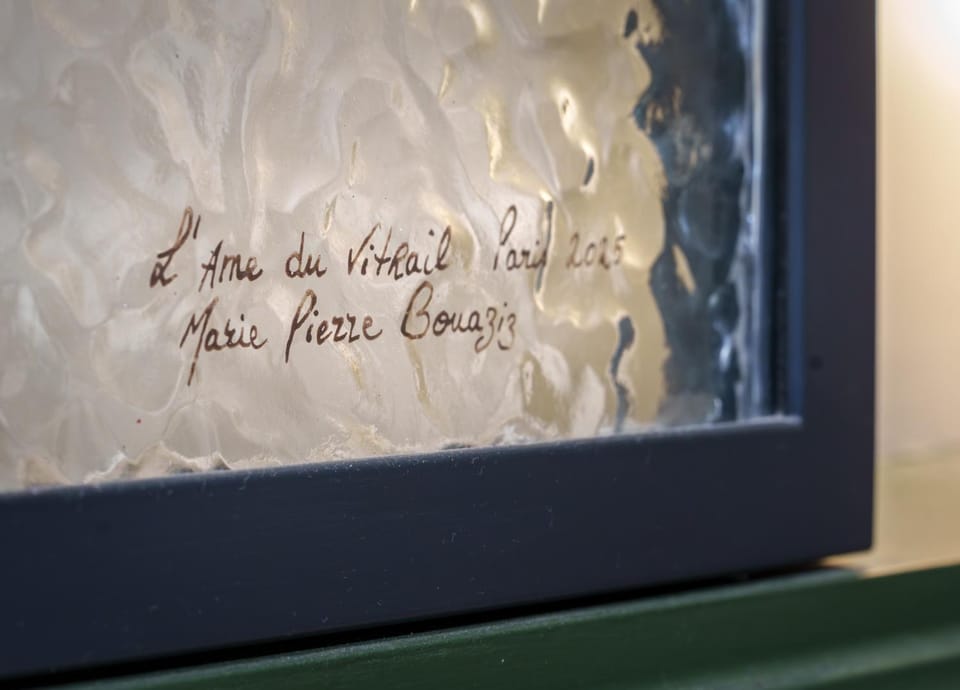 L'Ame du Vitrail Paris 2025
Marie Pierre Bouaziz